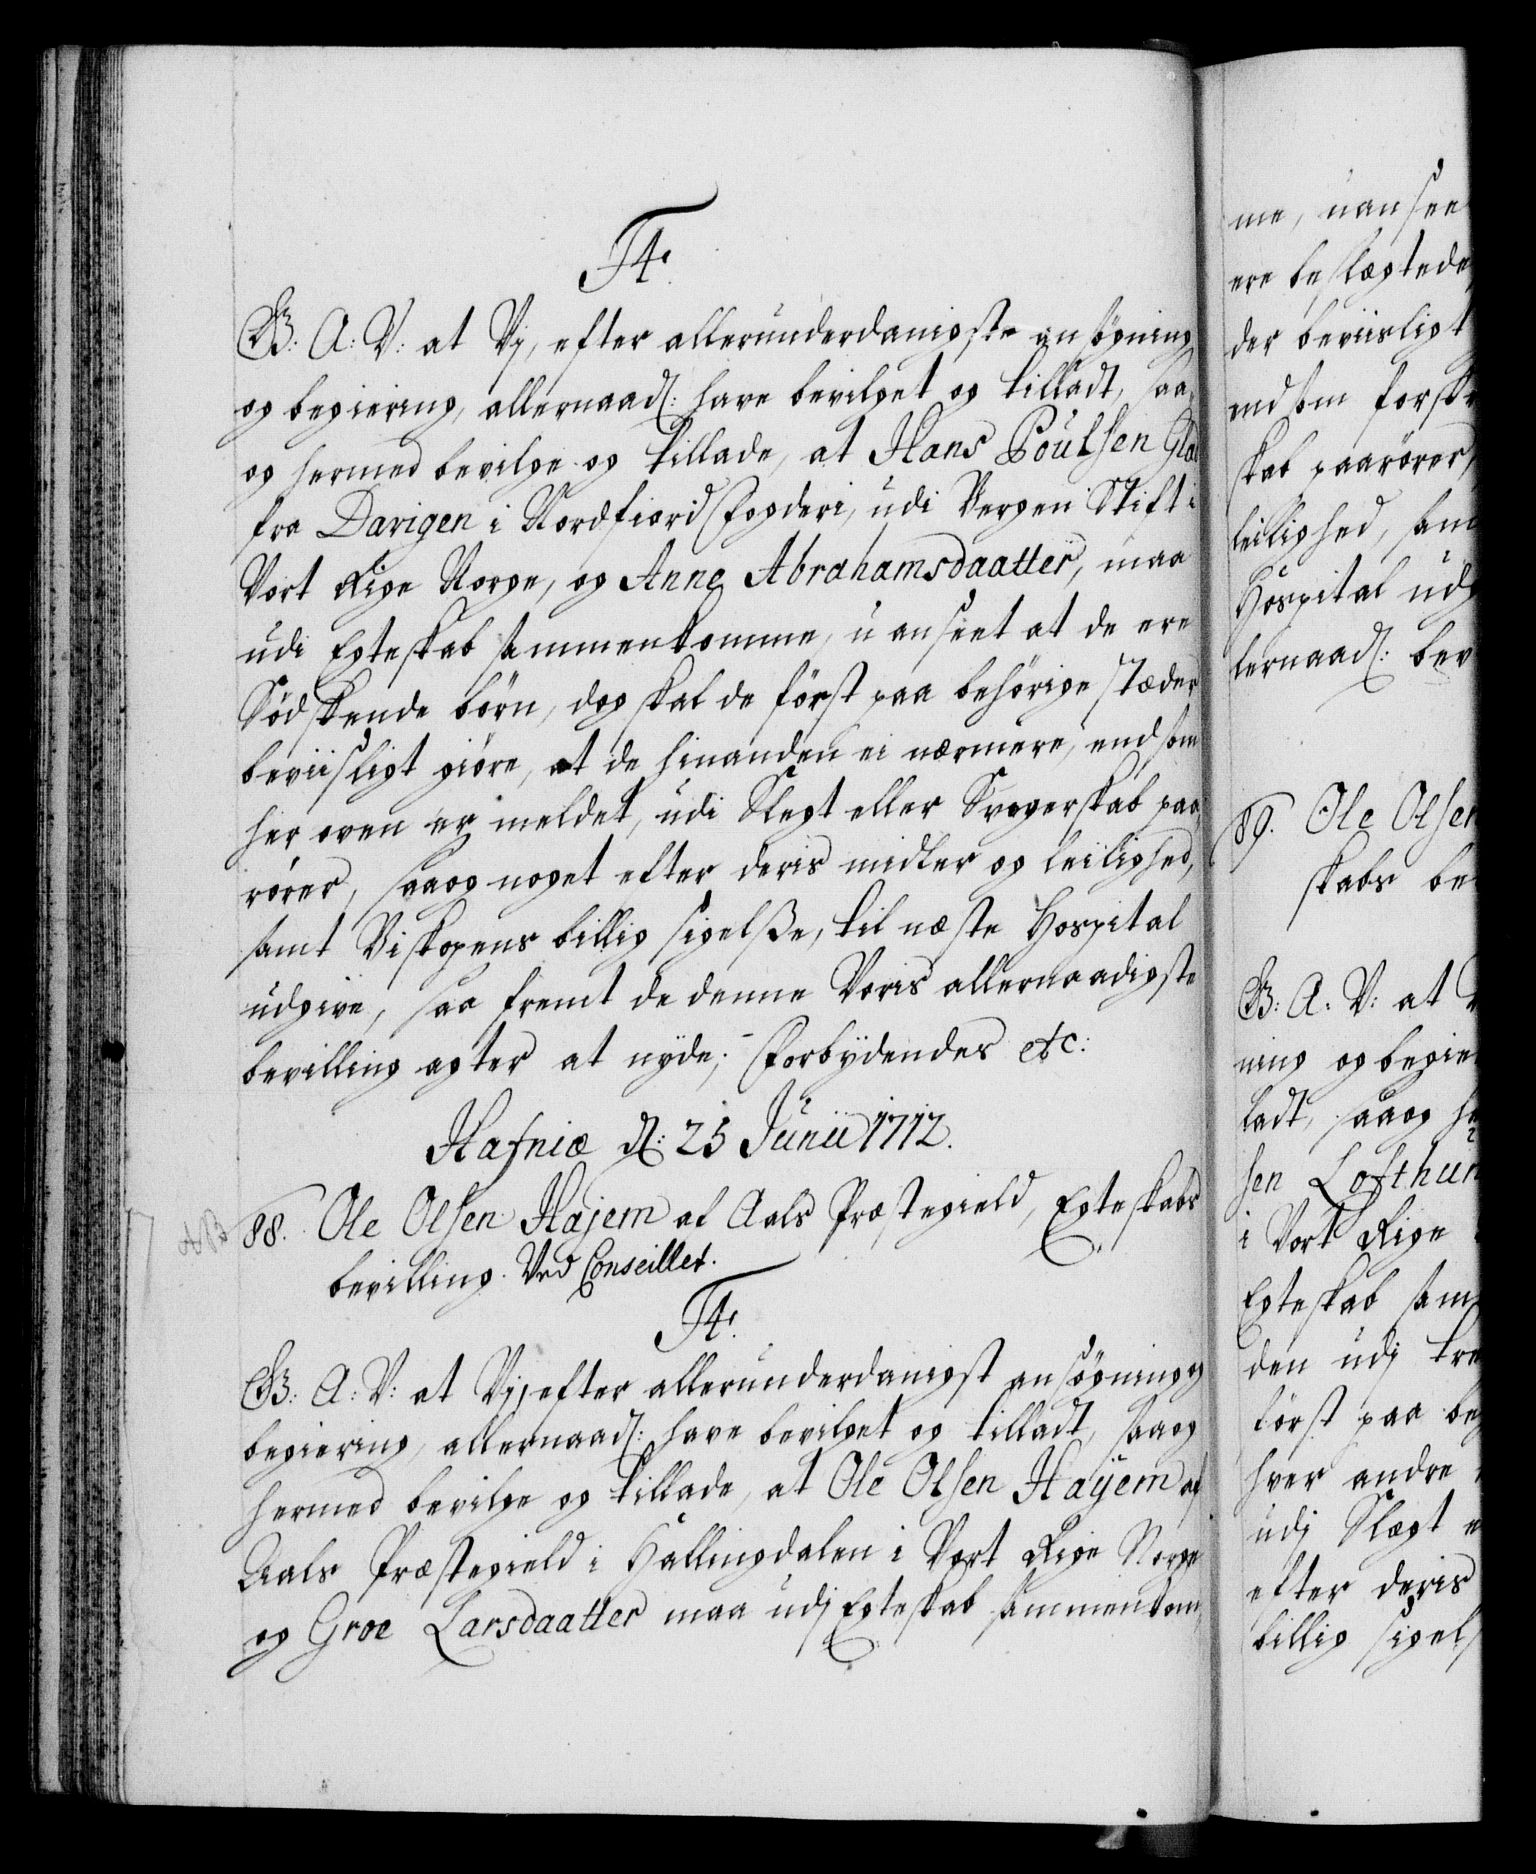 F4.
G: A: V: at Vj, efter allerunderdanigste ansøgning
og begiering, allernaad: have bevilget og tilladt, saa
og hermed bevilge og tillade, at Hans Poulsen
fra Davigen i Nordfiord Fogderi, udi Bergen Stift i
Vort Rige Norge, og Anne Abrahamsdaatter, maa
udi Egteskab sammenkomme, uanseet at de ere
Sødskende børn, dog skal de først paa behörige stæder
beviisligt giøre, at de hinanden ei nærmere, end som
her oven er meldet, udi Slegt eller Svogerskab paa
rører, saa og noget efter deris midler og leilighed,
samt Biskopens billig sigelße, til næste Hospital
udgive, saa fremt de denne Voris allernaadigste
bevilling agter at nyde; Forbydendes etc:
Hafniæ d: 25 Junii 1712.
88. Ole Olsen Hajem af Aals Præstegield, Egteskabs
bevilling. Ved Conseillet.
F4.
G: A: V: at Vj, efter allerunderdanigst ansøgning og
begiering, allernaad: have bevilget og tilladt, saa og
hermed bevilge og tillade, at Ole Olsen Hayem af
Aals Præstegield i Hallingdalen i Vort Rige Norge
og Groe Larsdaatter maa udj Egteskab sammenkom
me, uansee
ere beslægtede
der beviisligt
end som
skab paarører,
leilighed, sam
Hospital udg
lernaad: bev
89. Ole Olsen
skabs be
G: A: V: at
ning og begie
ladt, saa og he
sen Lofthun
i Vort Rige
Egteskab sam
den udj tre
først paa be
hver andre
udj Slægt e
efter deris
billig sigels